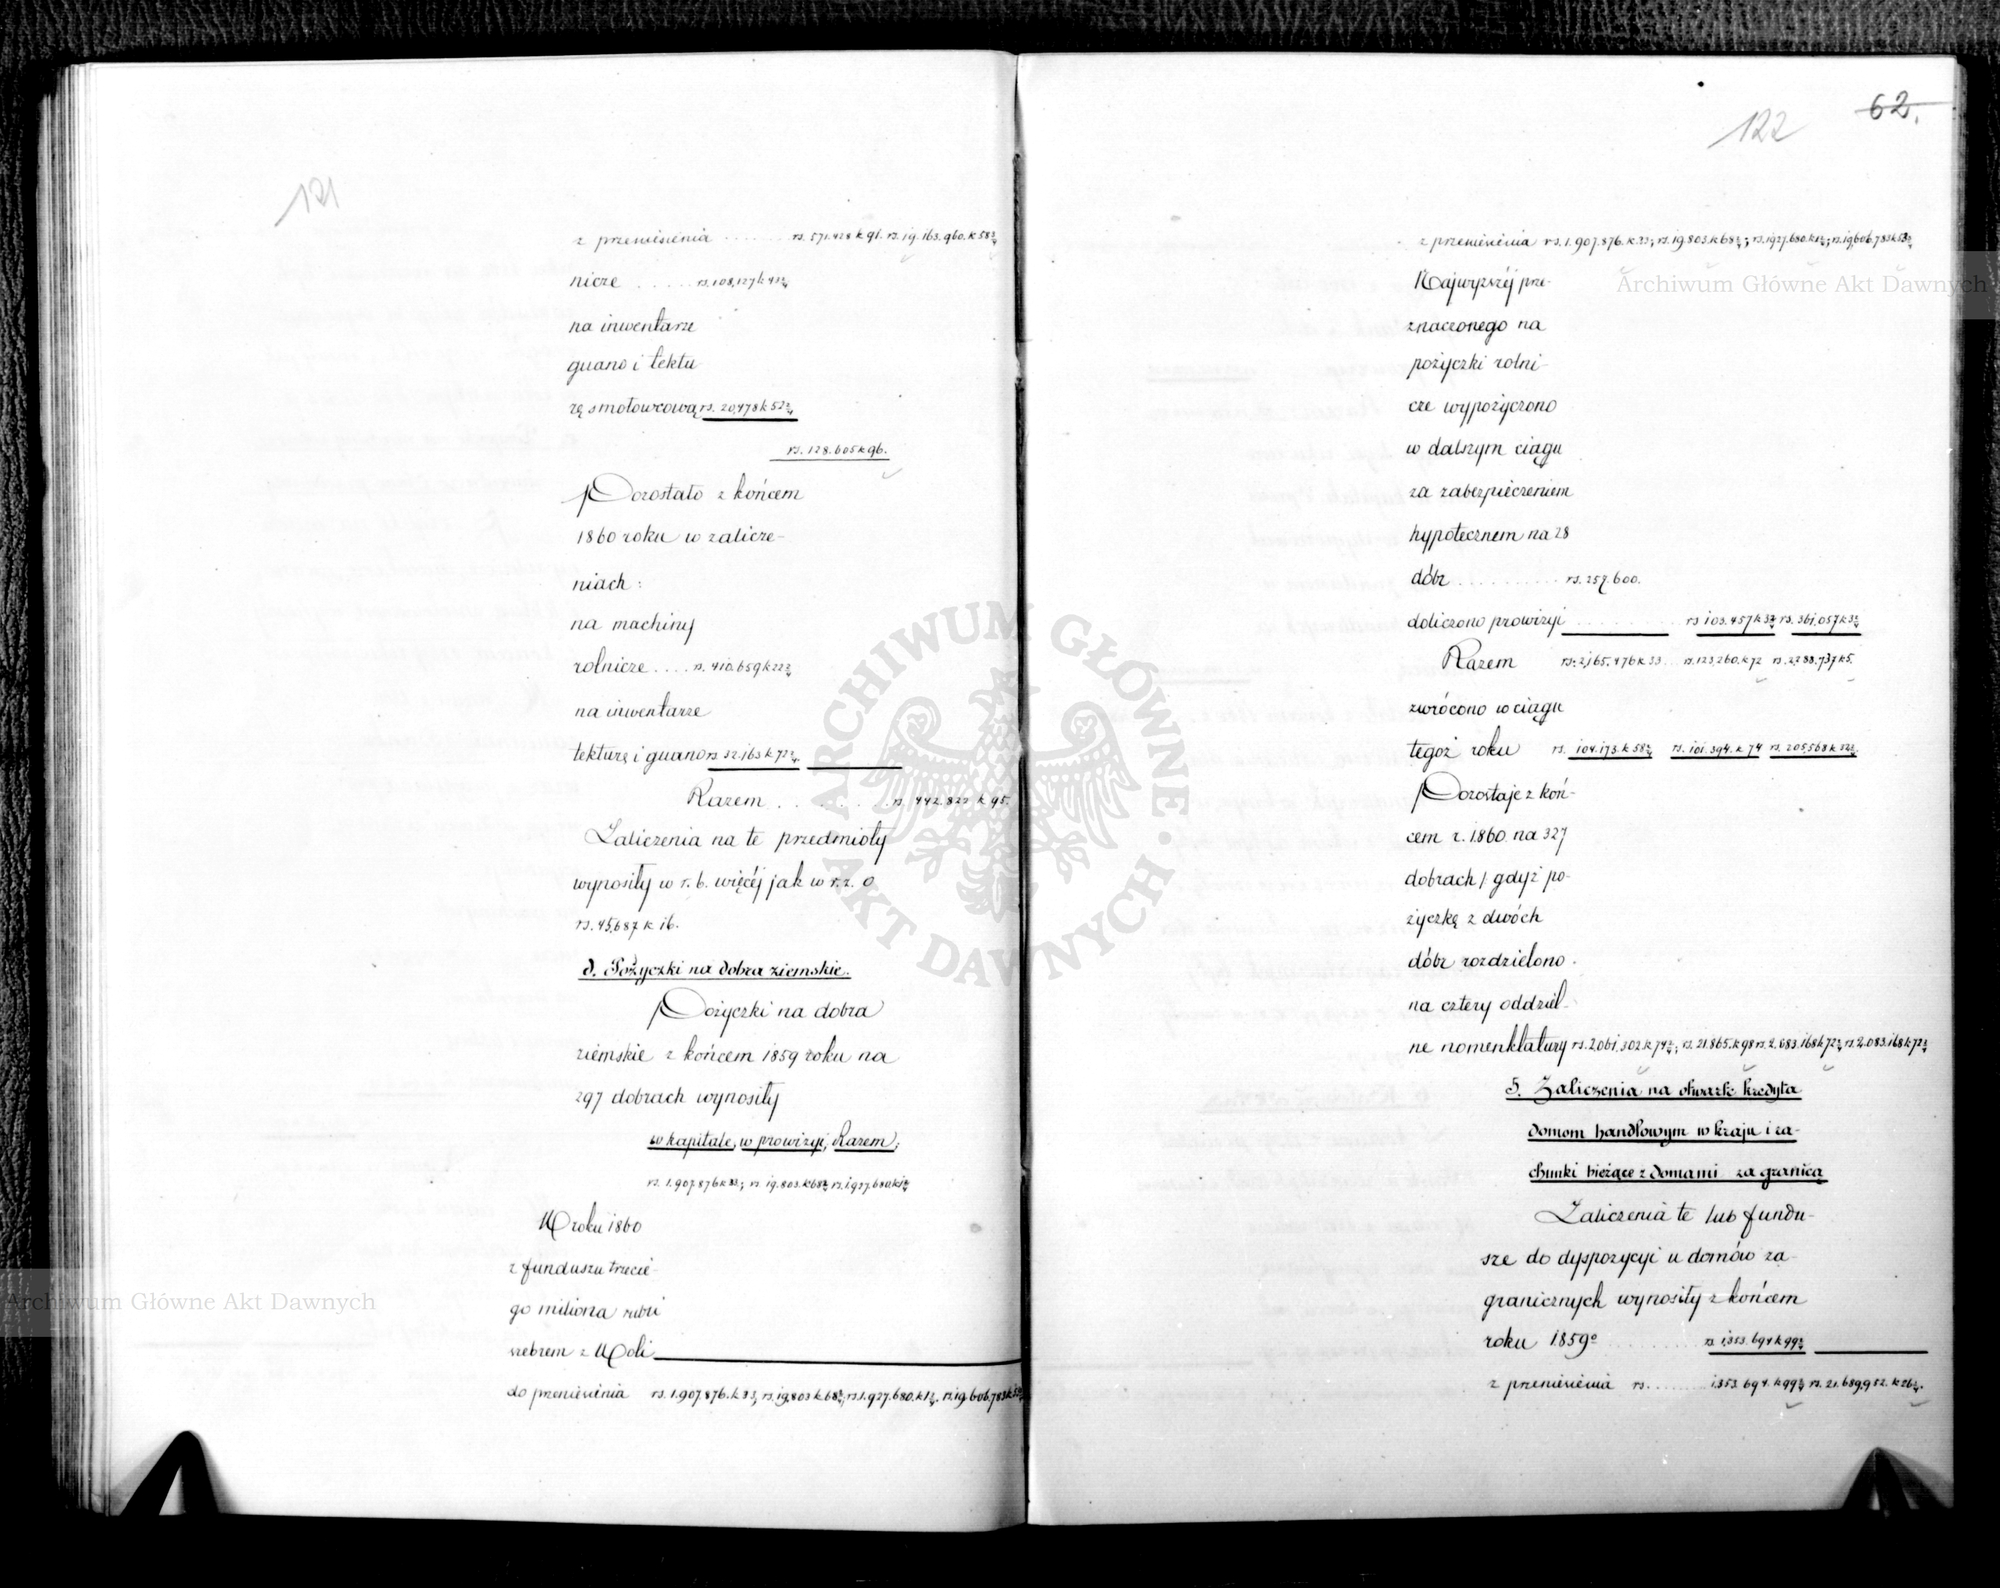 121
z przeniesienia . . . . . . . rs. 571.428 k 91. rs. 19.163.960. k 58½
nicze . . . . . rs. 108,127 k 43½
na inwentarze
guano i tektu
rę smołowcową rs. 20,478 k 52½
rs. 128.605 k 96.
Pozostało z końcem
1860 roku w zalicze-
niach:
na machiny
rolnicze . . . . rs. 410.659 k 22½
na inwentarze
tekturę i guano rs. 32.163 k 72½
Razem . . . . . . . . rs. 442.822 k 95.
Zaliczenia na te przedmioty
wynosiły w r. b. więcéj jak w r. z. o
rs. 45,687 k 16.
d. Pożyczki na dobra ziemskie.
Pożyczki na dobra
ziemskie z końcem 1859 roku na
297 dobrach wynosiły
w kapitale, w prowizyi, Razem;
rs. 1.907.876 k 33; rs. 19.803. k 68½ rs. 1.927.680. k 1½
W roku 1860
z funduszu trzecie-
go miliona rubli
srebrem z Woli
do przeniesienia rs. 1.907.876. k 33; rs. 19.803 k 68½; rs. 1.927.680. k 1½. rs. 19.606.783 k 53½
62.
122
z przeniesienia rs. 1.907.876. k 33; rs. 19.803. k 68½; rs. 1.927.680. k 1½; rs. 19,606.783 k 53½
Najwyższéj prze-
znaczonego na
pożyczki rolni-
cze wypożyczono
w dalszym ciągu
za zabezpieczeniem
hypotecznem na 28
dóbr . . . . . . . . . . rs. 257.600.
doliczono prowizyi . . . . . . . . rs 103.457 k 3½ rs. 361,057 k 3½
Razem rs. 2,165.476 k 33 rs. 123.260. k 72 rs. 2.288.737 k 5.
zwrócono w ciągu
tegoż roku rs. 104.173. k 58½ rs. 101.394. k 74 rs. 205.568 k 32½
Pozostaje z koń-
cem r. 1860 na 327
dobrach / gdyż po-
życzkę z dwóch
dóbr rozdzielono
na cztery oddziel-
ne nomenklatury rs. 2,061.302 k 74½; rs. 21.865. k 98 rs. 2.083.168 k 72½ rs. 2.083.168 k 72½
5. Zaliczenia na otwarte kredyta
domom handlowym w kraju i ra-
chunki bieżące z domami za granicą
Zaliczenia te lub fundu-
sze do dyspozycyi u domów za-
granicznych wynosiły z końcem
roku 1859º . . . . . . . . rs 1,353.694 k 99½
z przeniesienia rs. . . . . . . 1.353.694. k 99½ rs. 21.689.952. k 26½.
Archiwum Główne Akt Dawnych
Archiwum Główne Akt Dawnych
ARCHIWUM GŁÓWNE · AKT DAWNYCH ·